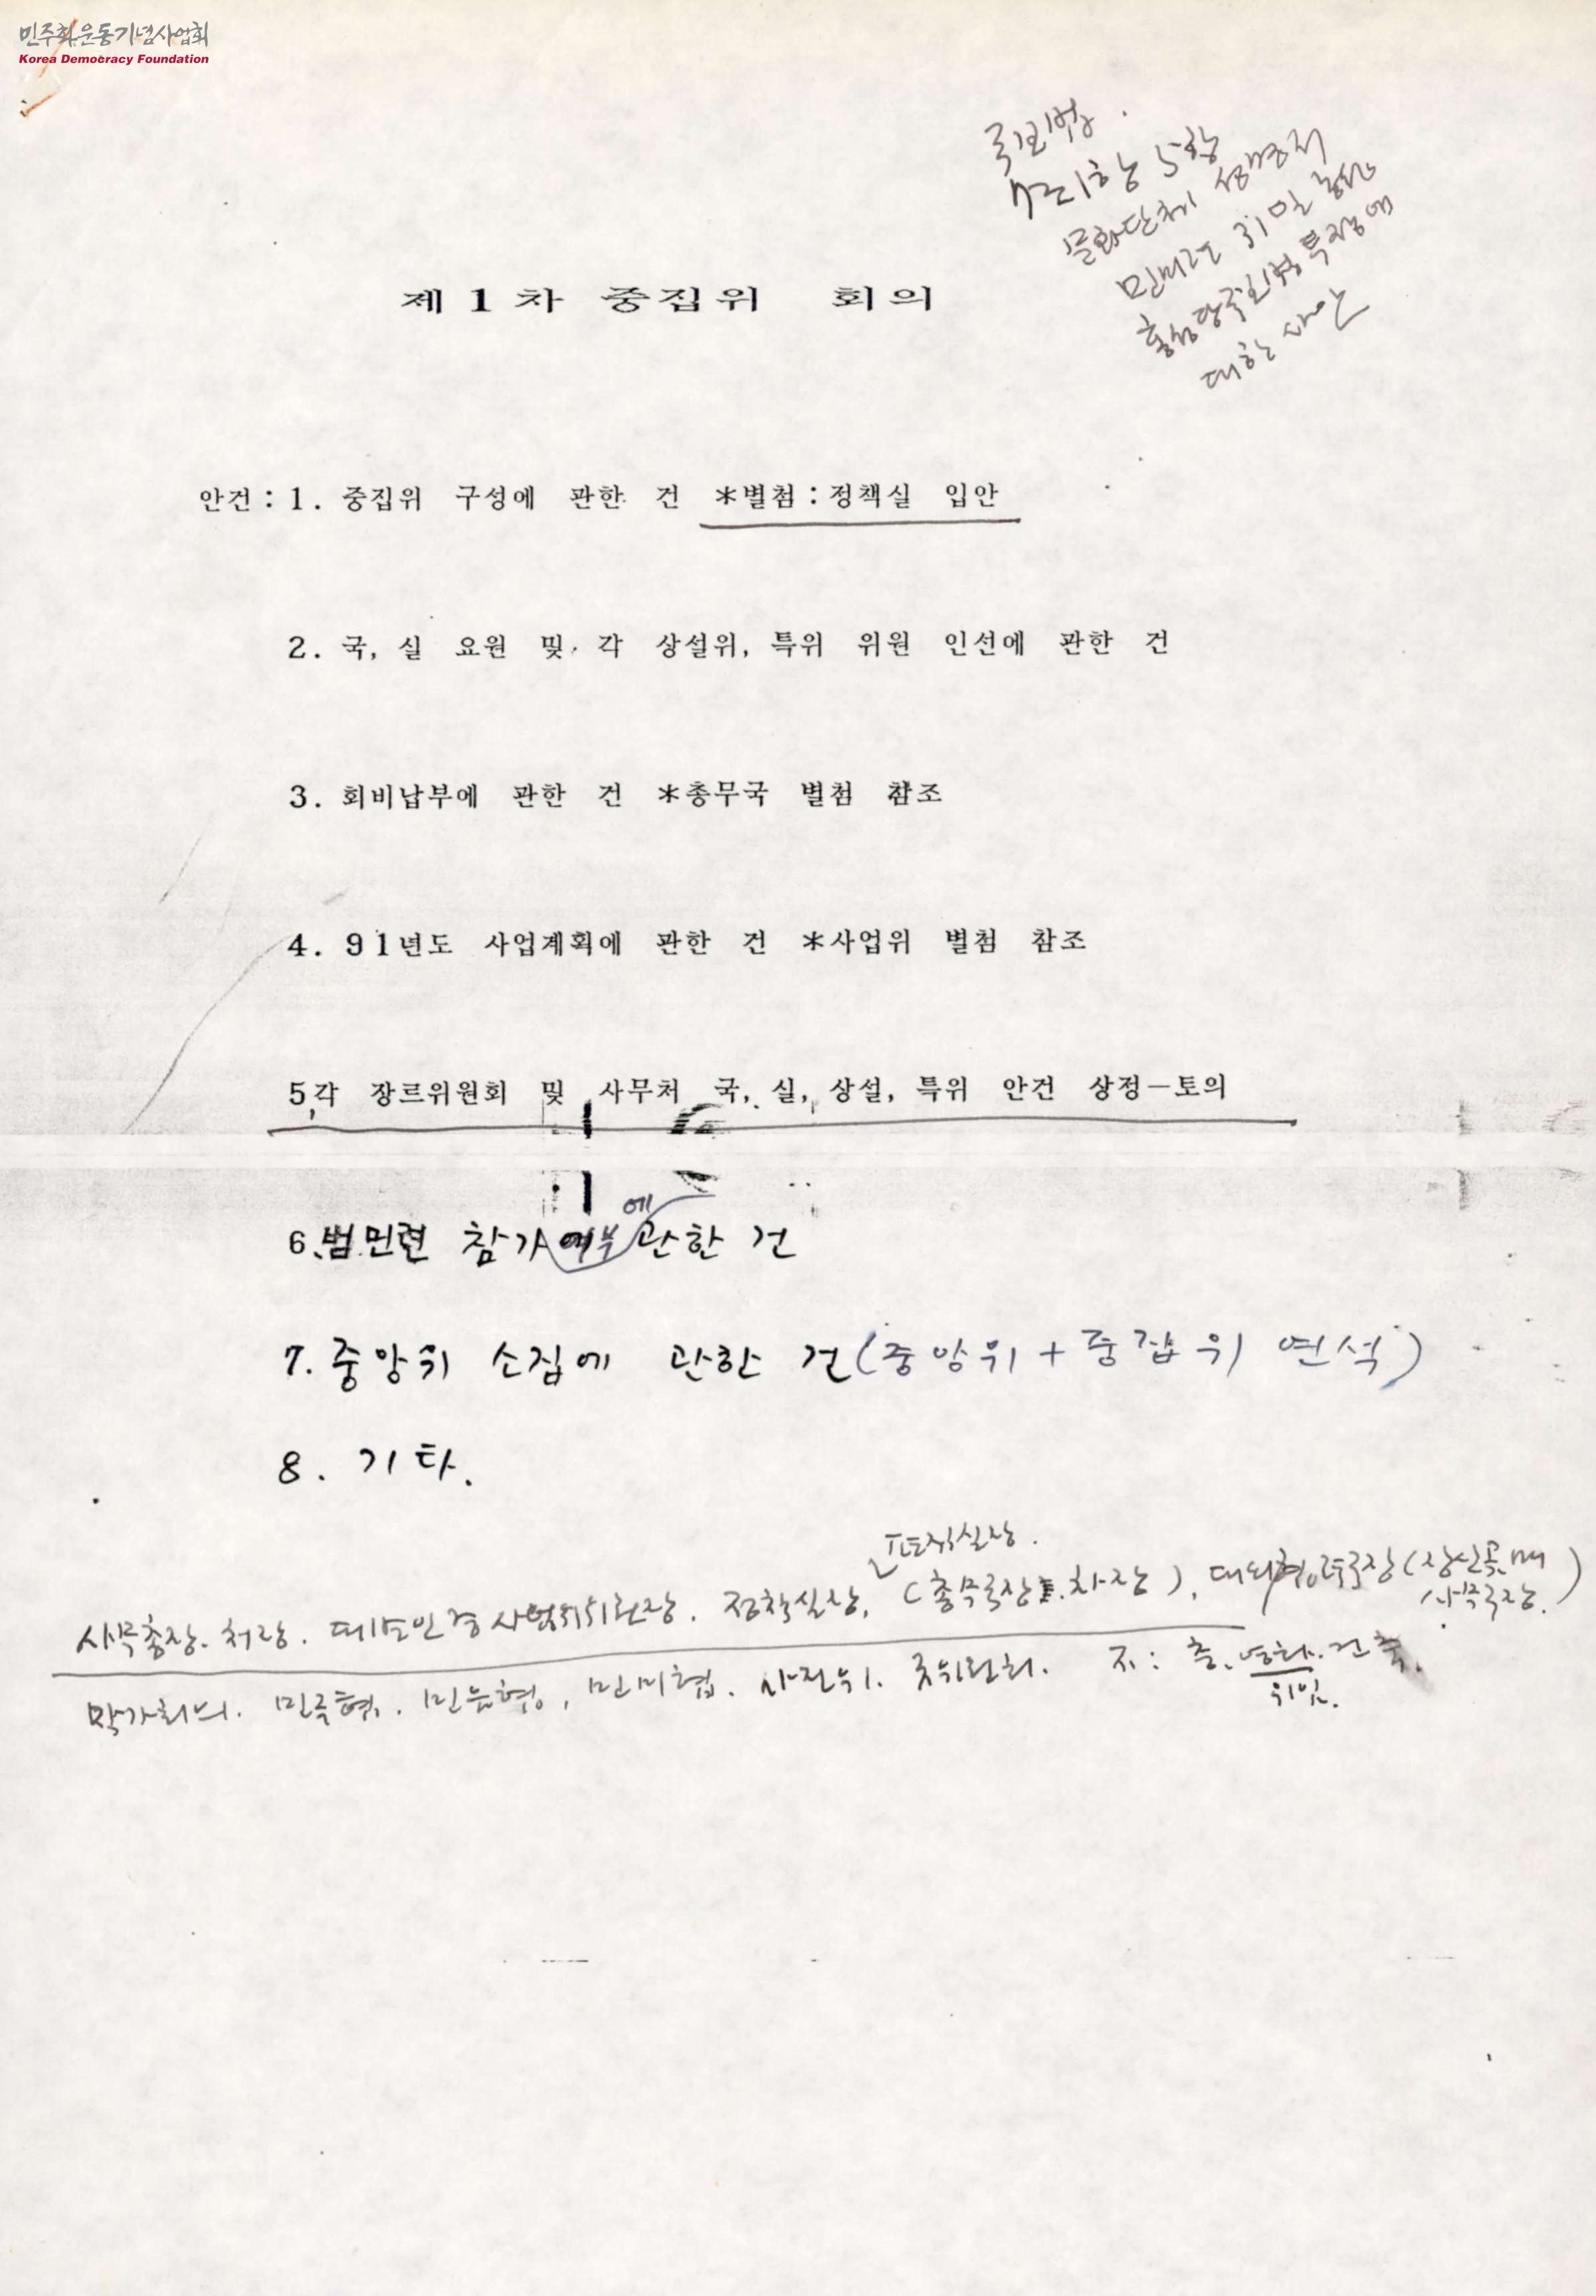 민주화운동기념사업회
Korea Democracy Foundation
국보법.
7조 1항 5항
문화단체
민미련 31일
대한
제 1 차 중집위 회의
안건 : 1. 중집위 구성에 관한 건 *별첨 : 정책실 입안
2. 국, 실 요원 및 각 상설위, 특위 위원 인선에 관한 건
3. 회비납부에 관한 건 *총무국 별첨 참조
4. 91년도 사업계획에 관한 건 *사업위 별첨 참조
5, 각 장르위원회 및 사무처 국, 실, 상설, 특위 안건 상정-토의
에
6. 범민련 참가여부 관한 건
7. 중앙위 소집에 관한 건 (중앙위 + 중집위 연석)
8. 기타.
편집실장.
사무총장. 처장. 정책실장, (총무국장 차장), 대외협력국장 (장산곶매
사무국장.)
작가회의. 민족협. 민음협, 민미협. 사진위. 굿위원회. 지: 춤. 영화. 건축.
위임.